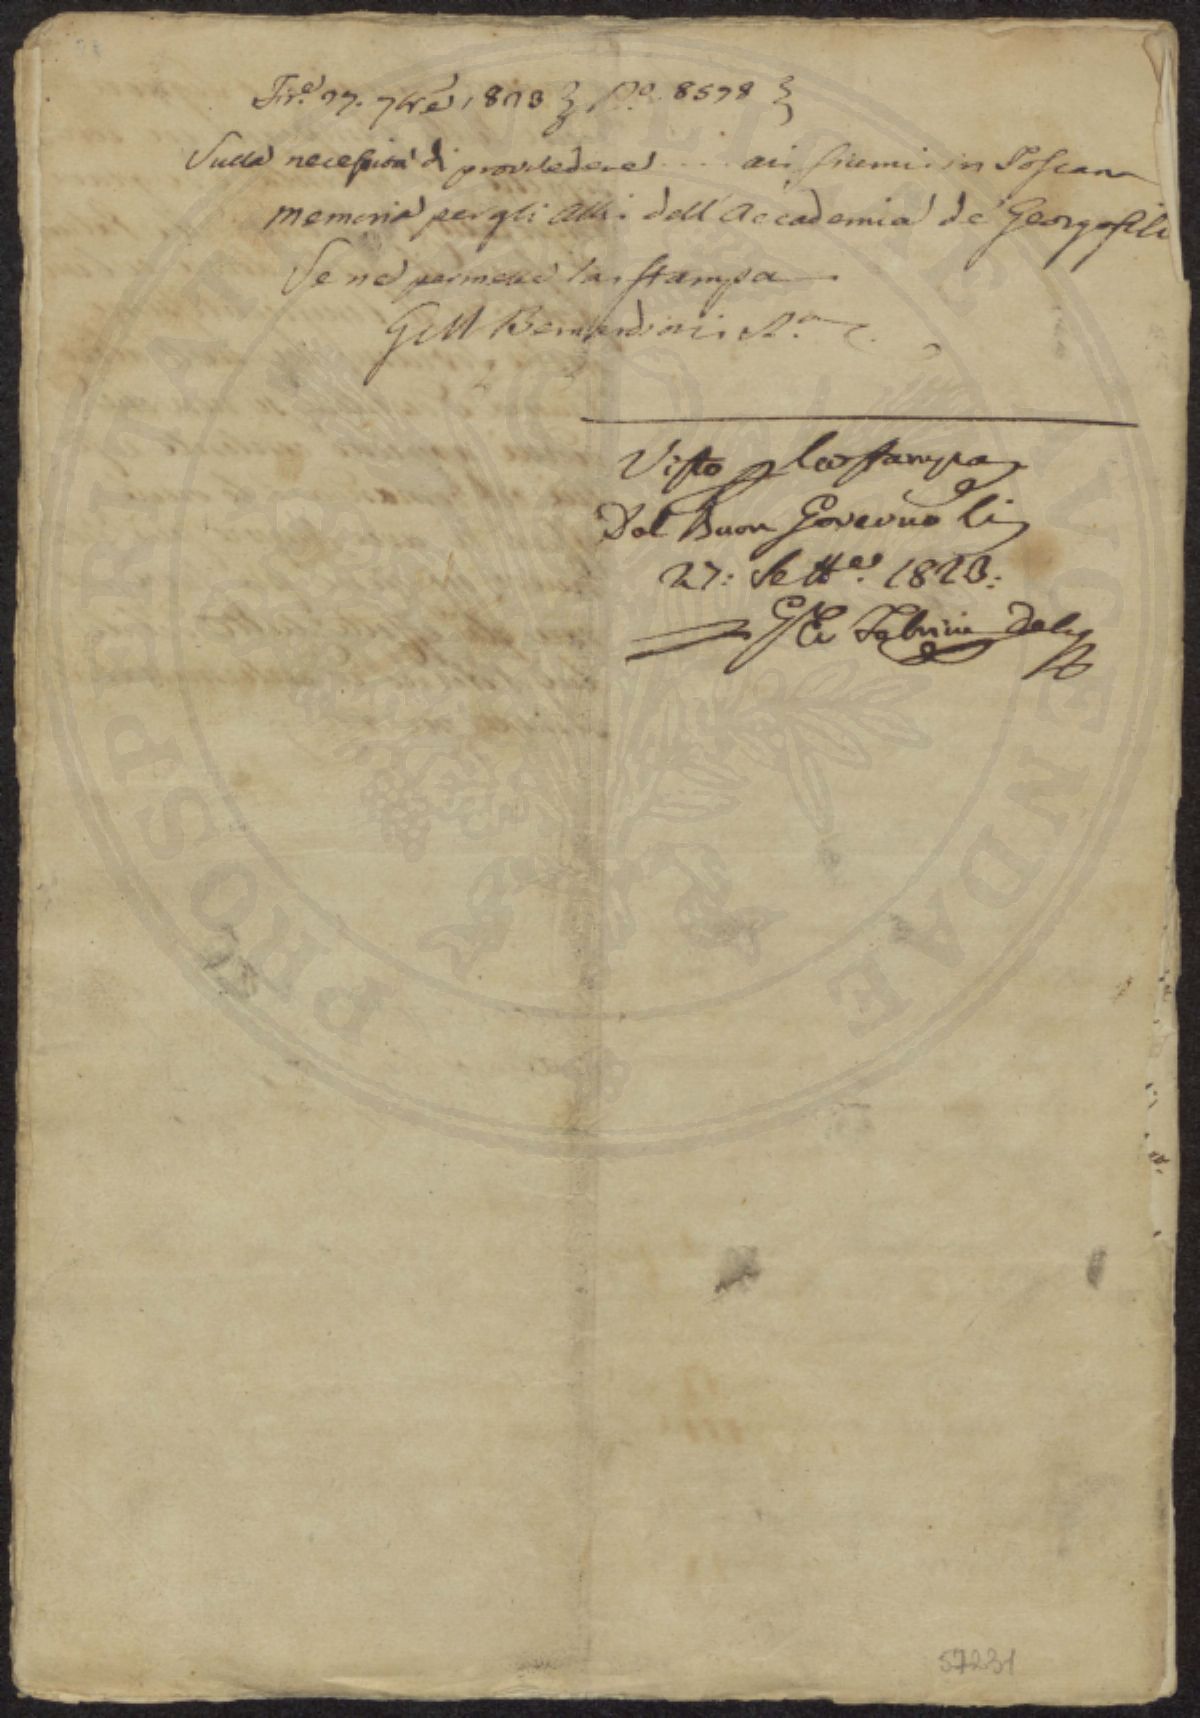 Fir.e 27. 7bre 1823 } N.o 8578 }
Sulla necessità di provvedere .... ai fiumi in Toscana
memoria per gli Atti dell'Accademia de' Georgofili
Se ne permette la stampa
Bernardini
Visto per la stampa
Dal Buon Governo li
27: Sett.e 1823:
Fabrini
57231
PROSPERITATI PUBLICAE AUGENDAE